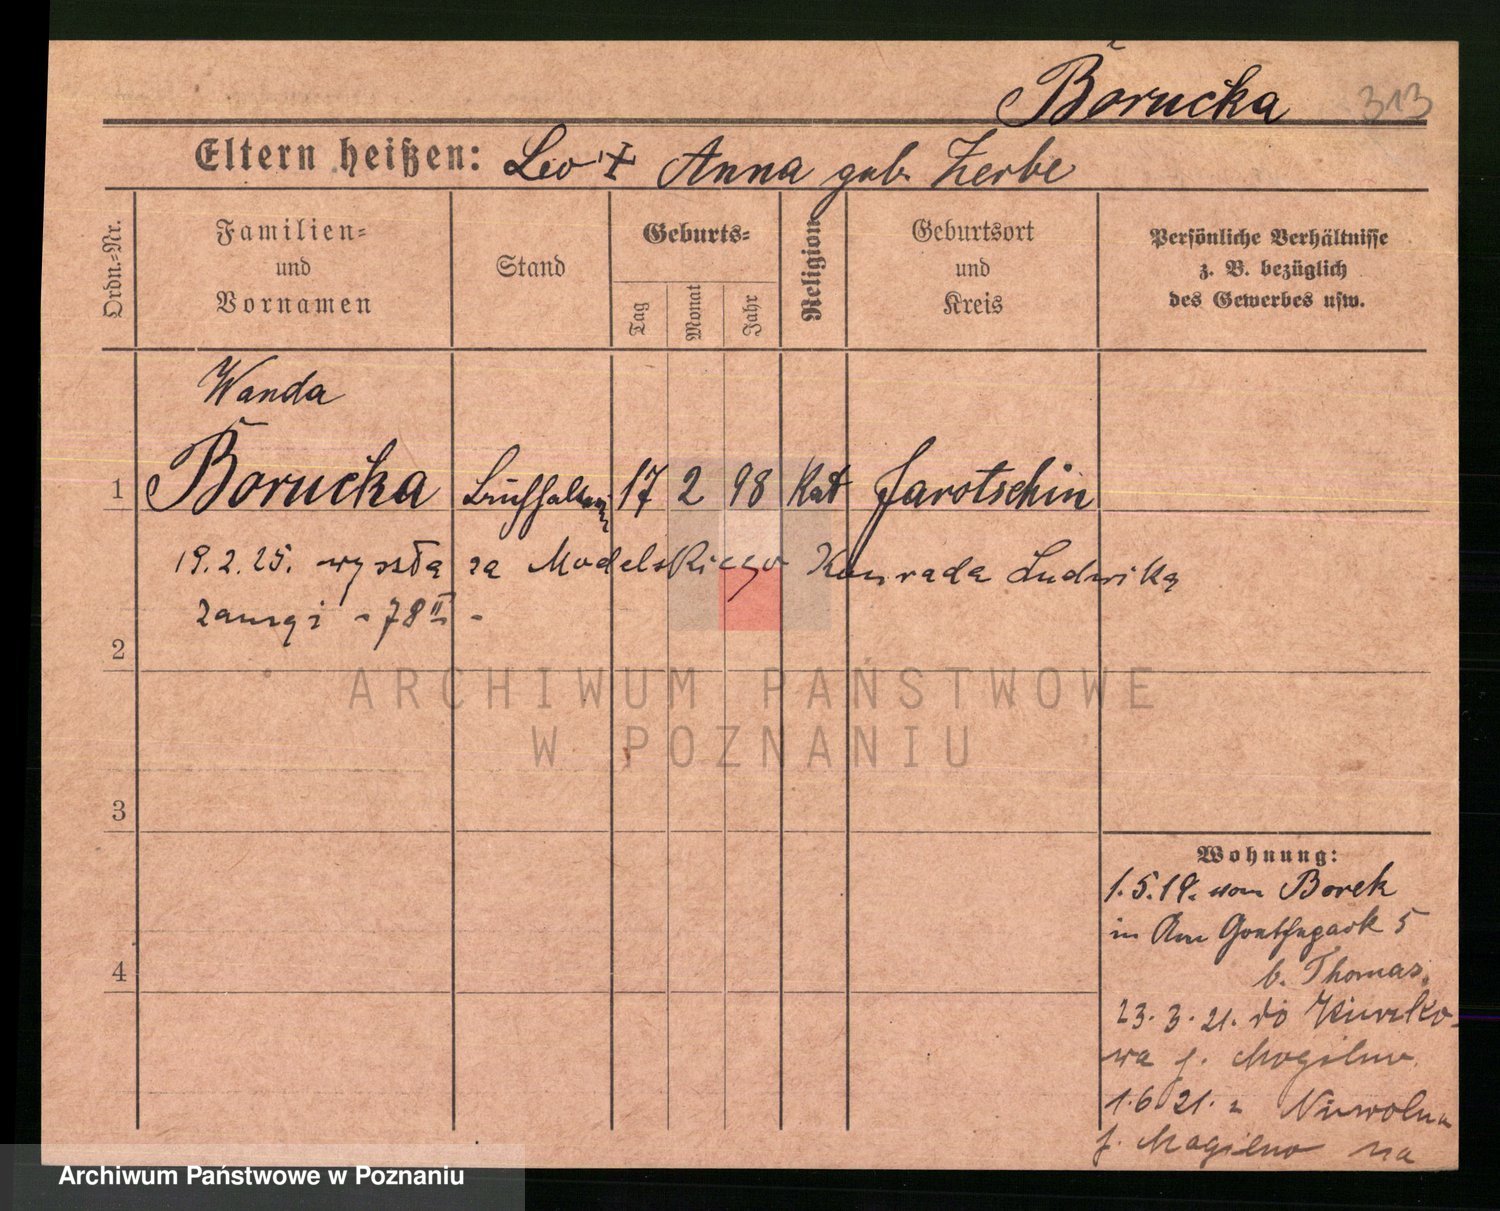 Borucka 313
Eltern heißen: Leo + Anna geb. Zerbe
Ordn.-Nr.
Familien-
und
Vornamen
Stand
Geburts-
Tag
Monat
Jahr
Religion
Geburtsort
und
Kreis
Persönliche Verhältnisse
z. B. bezüglich
des Gewerbes usw.
Wanda
1 Borucka Buchhalterin 17 2 98 Kat Jarotschin
19.2.25. wyszła za Modelskiego Konrada Ludwika
78 II -
2
3
4
ARCHIWUM PAŃSTWOWE
W POZNANIU
Wohnung:
1.5.19. von Borek
in Am 5
b. Thomas,
23.3.21. do
wa p. Mogilno
1.6.21. z
p. Mogilno na
Archiwum Państwowe w Poznaniu